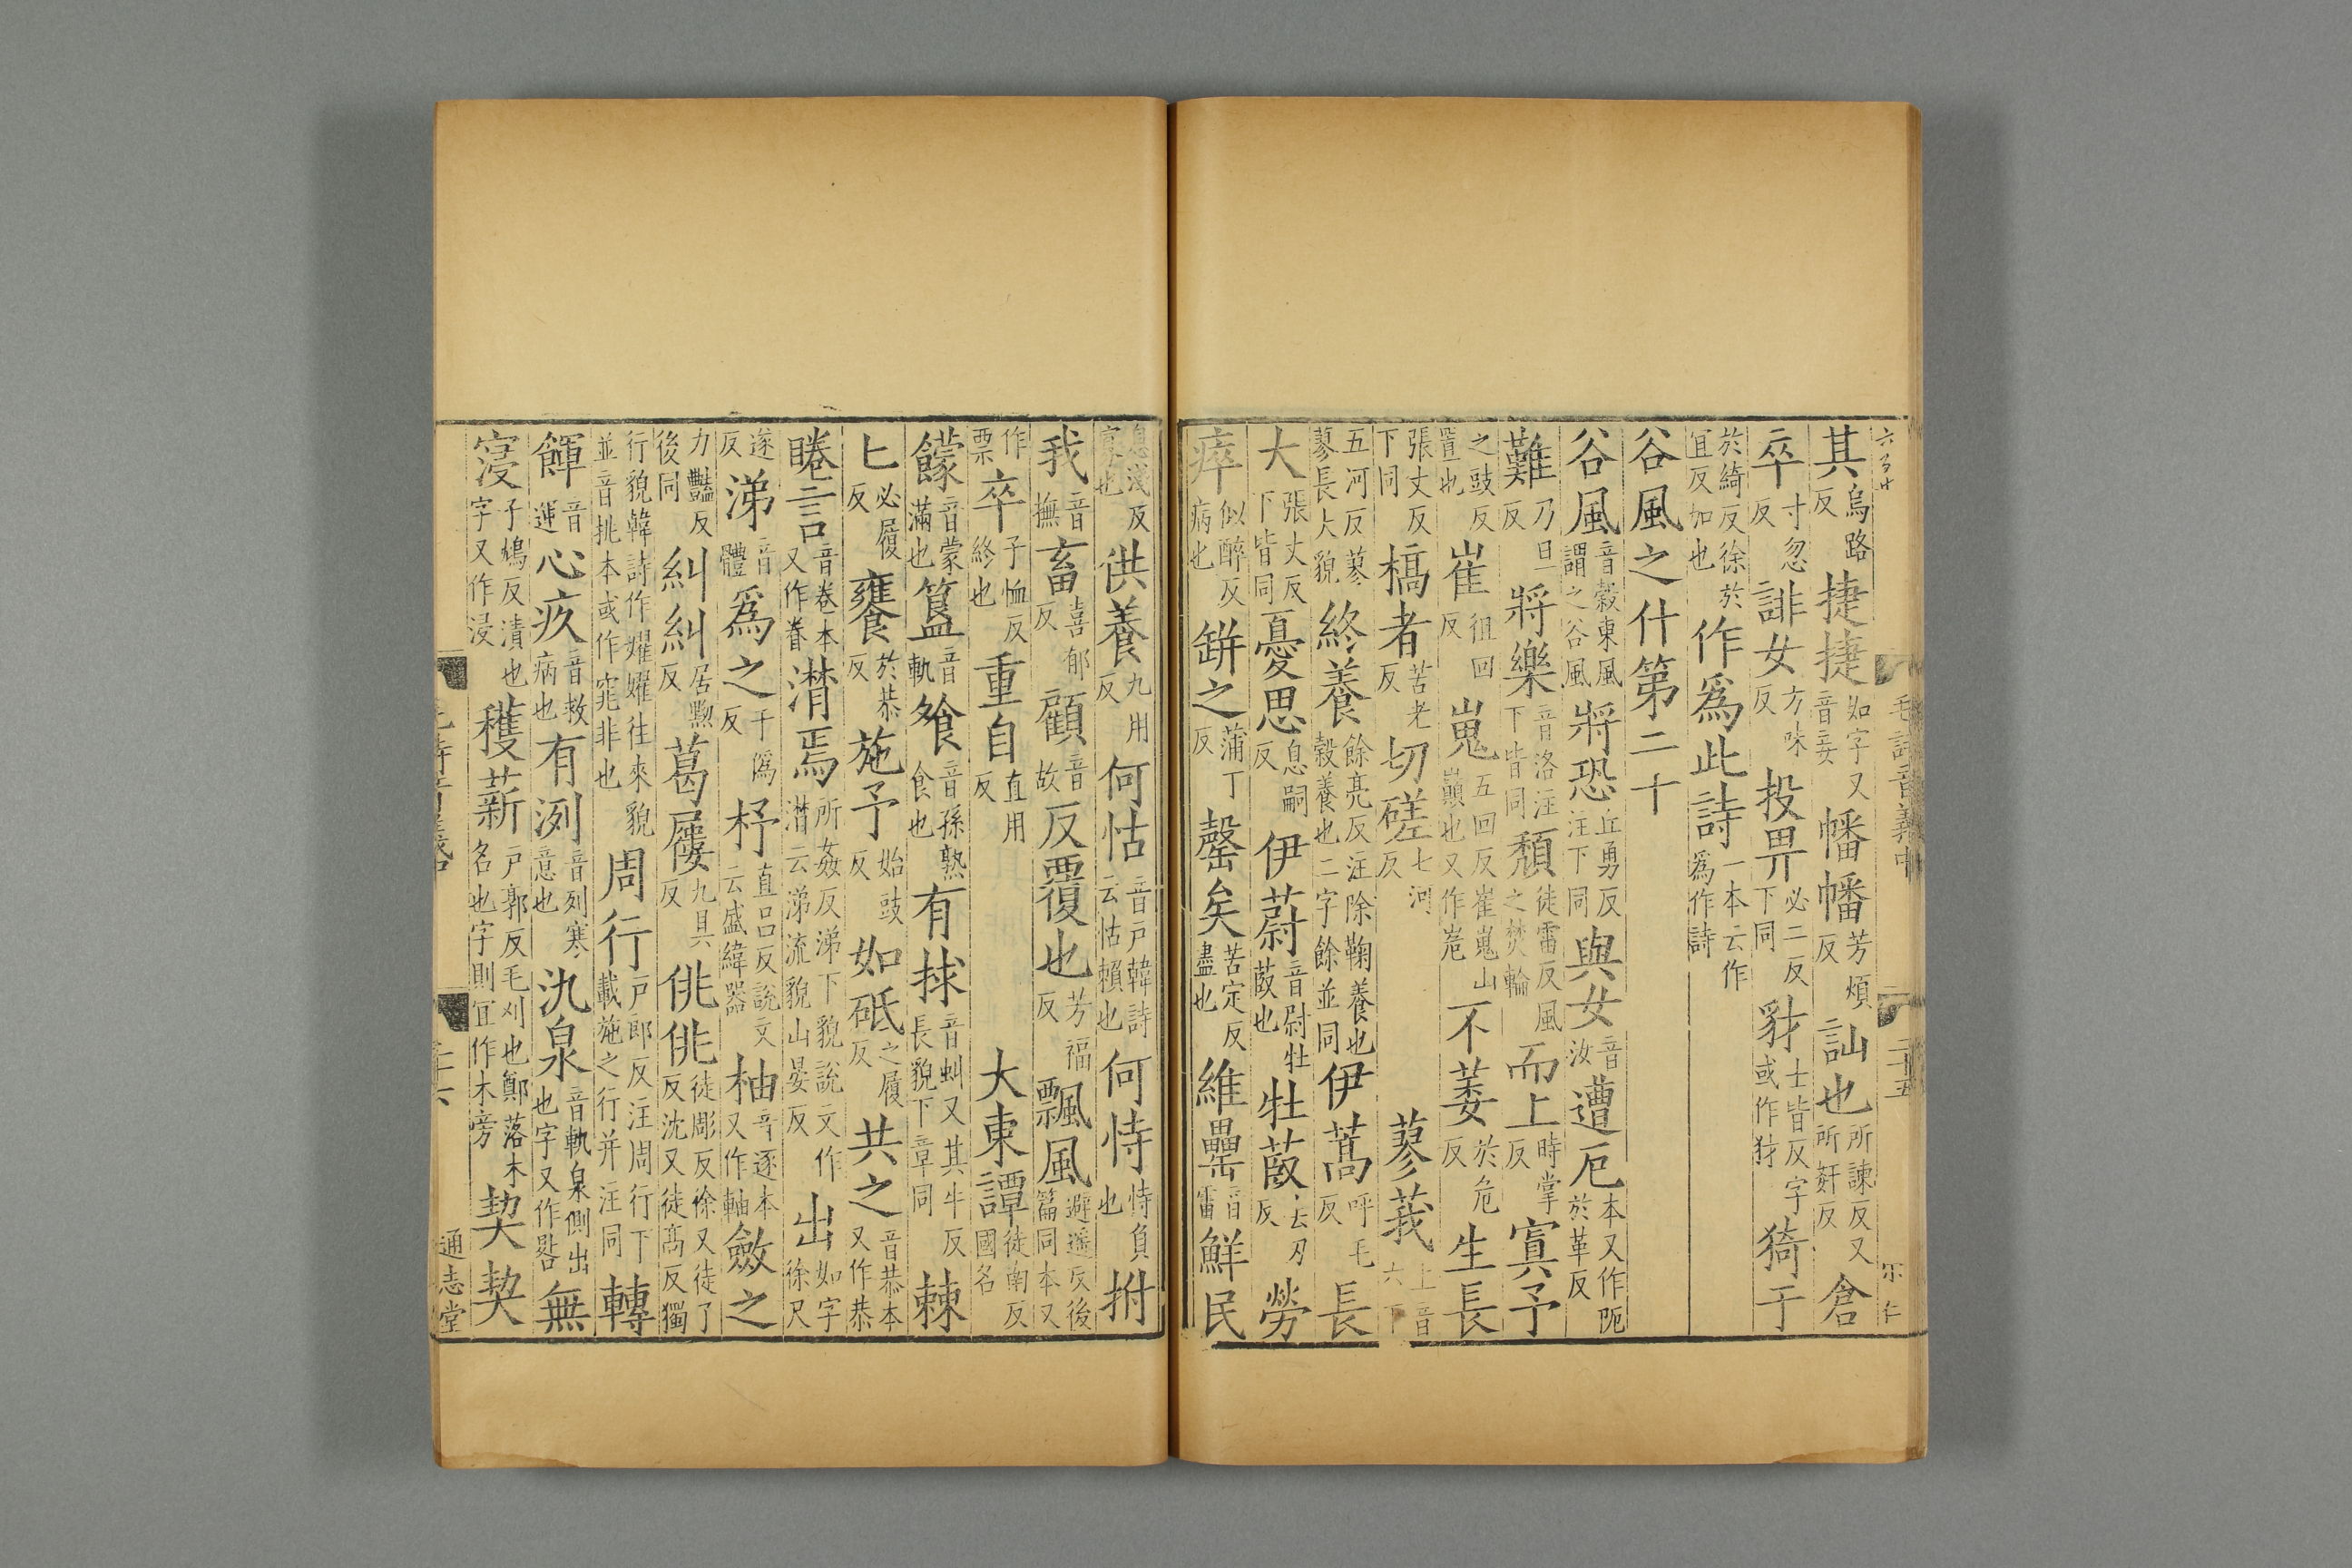 六百廿 毛詩音義中 二十五
其烏路反捷捷如字又音妾幡幡芳煩反訕也所諫反又所姦反倉
卒寸忽反誹女方味反投畀必二反下同豺士皆反字或作犲猗于
於綺反徐於宜反加也作爲此詩一本云作爲作詩
谷風之什第二十
谷風音穀東風謂之谷風將恐丘勇反注下同與女音汝遭厄本又作阨於革反
難乃旦反將樂音洛注下皆同頹徒雷反風之焚輪而上時掌反寘予
之豉反置也崔徂回反嵬五回反崔嵬山巓也又作嵓不萎於危反生長
張丈反下同槁者苦老反切磋七河反蓼莪上音六下
五河反蓼蓼長大貌終養餘亮反注除鞠養也穀養也二字餘並同伊蒿呼毛反長
大張丈反下皆同憂思息嗣反伊蔚音尉牡菣也牡菣去刃反勞
瘁似醉反病也缾之蒲丁反罄矣苦定反盡也維罍音雷鮮民
息淺反寡也供養九用反何怙音戶韓詩云怙賴也何恃恃負也拊
我音撫畜喜郁反顧音故反覆也芳福反飄風避遙反後篇同本又
作票卒子恤反終也重自直用反大東譚徒南反國名
饛音蒙滿也簋音軌飧音孫熟食也有捄音虯又其牛反長貌下章同棘
匕必履反饔於恭反施予始豉反如砥之履反共之音恭本又作恭
睠言音卷本又作眷潸焉所姦反涕下貌說文作潸云涕流貌山晏反出如字徐尺
遂反涕音體爲之于偽反杼直呂反說文云盛緯器柚音逐本又作軸斂之
力豔反後同糾糾居黝反葛屨九具反佻佻徒彫反徐又徒了反沈又徒高反獨
行貌韓詩作嬥嬥往來貌並音挑本或作窕非也周行戶郎反注周行下載施之行并注同轉
餫音運心疚音救病也有洌音列寒意也氿泉音軌泉側出也字又作晷無
寖子鴆反漬也字又作浸穫薪戶郭反毛刈也鄭落木名也字則宜作木旁契契
通志堂